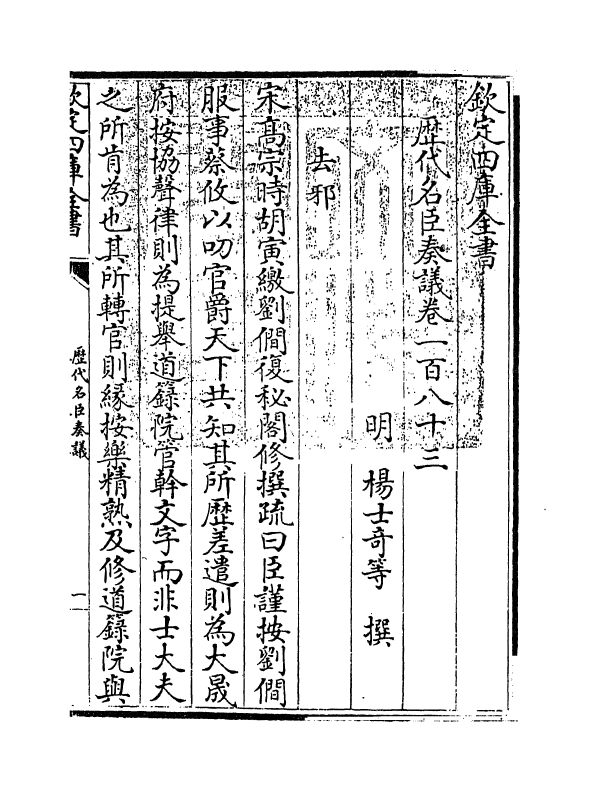 欽定四庫全書
歴代名臣奏議卷一百八十三
明 楊士奇等 撰
去邪
宋高宗時胡寅繳劉僩復秘閣修撰疏曰臣謹按劉僩
服事蔡攸以叨官爵天下共知其所歴差遣則為大晟
府按協聲律則為提舉道籙院管幹文字而非士大夫
之所肯為也其所轉官則縁按樂精熟及修道籙院與
欽定四庫全書
歴代名臣奏議
一